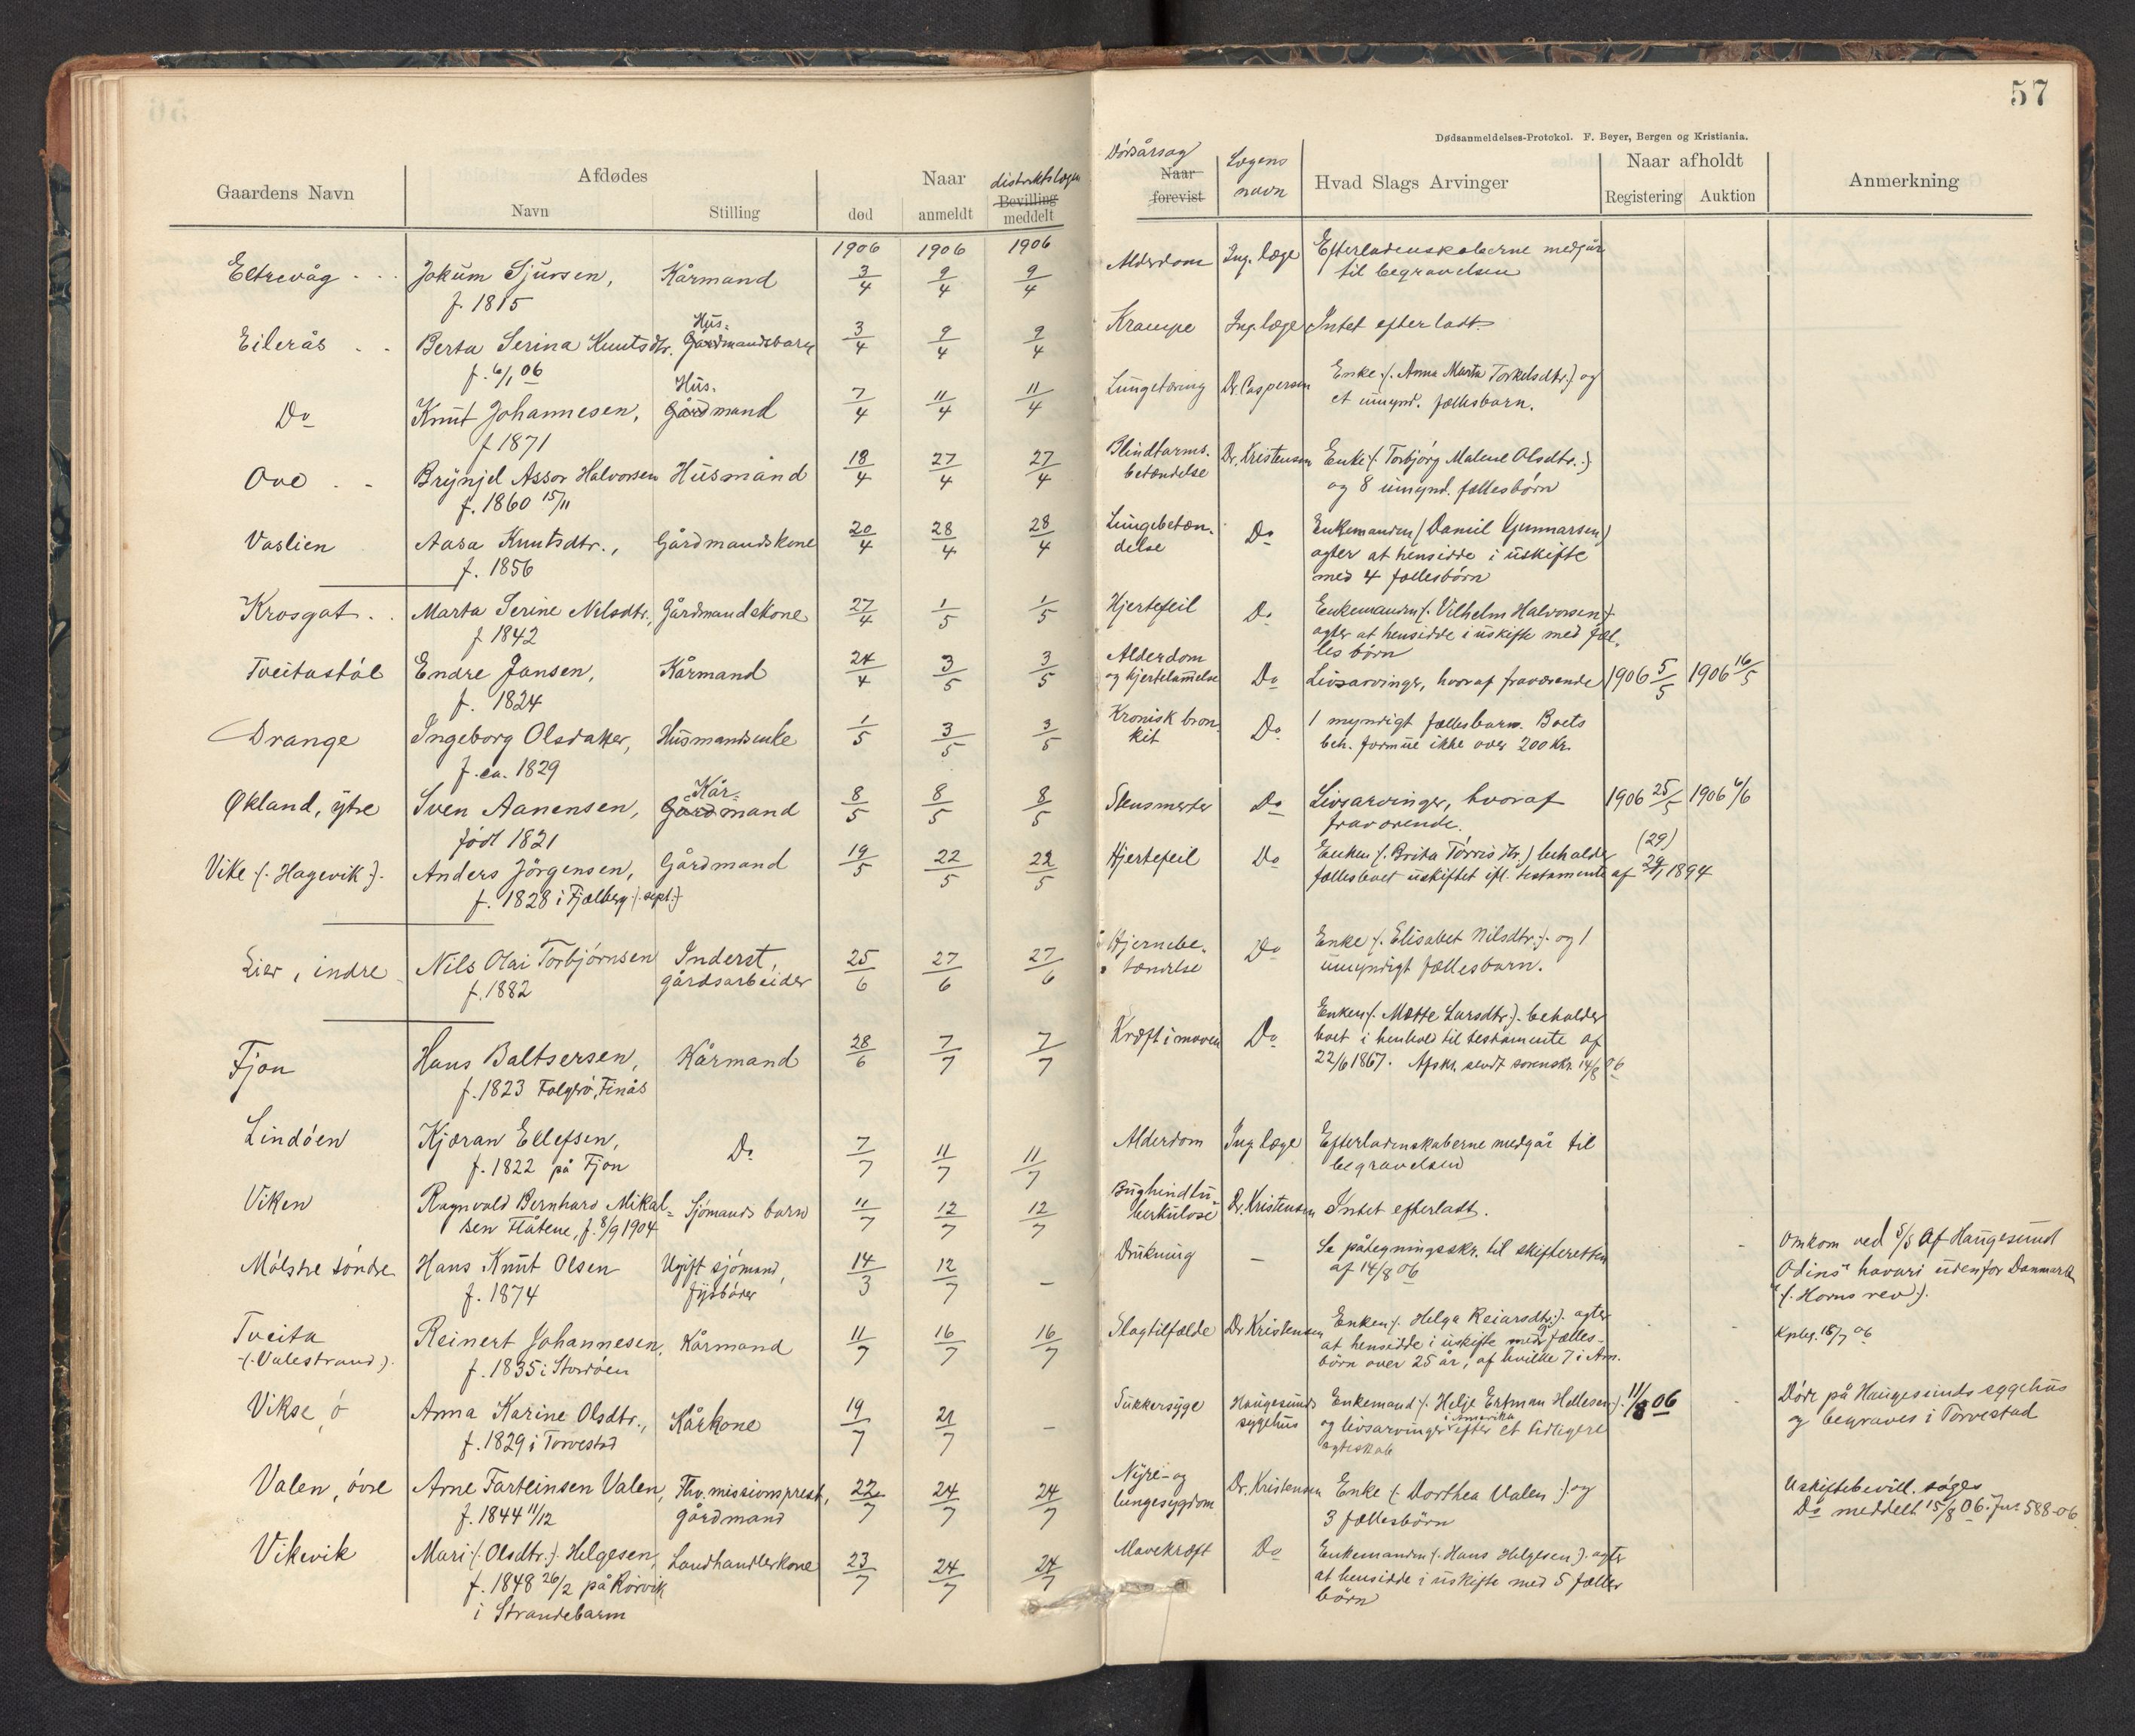 57
Dødsanmeldelses-Protokol. F. Beyer, Bergen og Kristiania.
Gaardens Navn
Afdødes
Navn
Stilling
Naar
død
anmeldt
distriktslægen
Bevilling
meddelt
Dödsårsag
Naar
forevist
Lægens
navn
Hvad Slags Arvinger
Naar afholdt
Registering
Auktion
Anmerkning
1906 1906 1906
Eltrevåg Jokum Sjursen, Kårmand 3/4 9/4 9/4 Alderdom Ing. læge Efterladenskaberne medgår
f. 1815 til begravelsen
Eilerås Berta Serina Knutsdtr. Hus- Gårdmandsbarn 3/4 9/4 9/4 Krampe Ing. læge Intet efterladt.
f. 6/1 06
Do Knut Johannesen, Hus- Gårdmand 7/4 11/4 11/4 Lungetæring Dr. Caspersen Enke (Anna Marta Torkelsdtr.) og
f 1871 et umynd. fællesbarn.
Ove Brynjel Assor Halvorsen Husmand 18/4 27/4 27/4 Blindtarms- Dr. Kristensen Enke (Torbjörg Malene Olsdtr.)
f. 1860 15/11 betændelse og 8 umynd. fællesbörn
Vaslien Aasa Knutsdtr., Gårdmandskone 20/4 28/4 28/4 Lungebetæn- Do Enkemanden (Daniel Gunnarsen)
f. 1856 delse agter at hensidde i uskifte
med 4 fællesbörn
Krosgat Marta Serine Nilsdtr., Gårdmandskone 27/4 1/5 1/5 Hjertefeil Do Enkemanden (Vilhelm Halvorsen)
f 1842 agter at hensidde i uskifte med fæl-
les börn
Tveitastøl Endre Jansen, Kårmand 24/4 3/5 3/5 Alderdom Do Livsarvinger, hvoraf fraværende 1906 5/5 1906 16/5
f. 1824 og hjertelammelse
Drange Ingeborg Olsdatter, Husmandsenke 1/5 3/5 3/5 Kronisk bron- Do 1 myndigt fællesbarn. Boets
f. ca. 1829 kit beh. formue ikke over 200 Kr.
Økland, ytre Sven Aanensen, Kår- Gårdmand 8/5 8/5 8/5 Stensmerter Do Livsarvinger, hvoraf 1906 25/5 1906 6/6
född 1821 fraværende.
Vike (Hagevik) Anders Jörgensen, Gårdmand 19/5 22/5 22/5 Hjertefeil Do Enken (Brita Törrisdtr.) beholder (29)
f. 1828 i Fjelberg (sept.) fællesboet uskiftet ifl. testamente af 29/1 1894
Eier, indre Nils Olai Torbjörnsen Inderst, 25/6 27/6 27/6 Hjernebe- Do Enke (Elisabet Nilsdtr.) og 1
f. 1882 gårdsarbeider tændelse umyndigt fællesbarn.
Fjon Hans Baltsersen, Kårmand 28/6 7/7 7/7 Kræft i maven Do Enken (Mette Larsdtr.) beholder
f. 1823 Finås boet i henhold til testamente af
22/6 1867. Afskr. sendt sorenskr. 14/8 06
Lindöen Kjæran Ellefsen, Do 7/7 11/7 11/7 Alderdom Ing. læge Efterladenskaberne medgår til
f. 1822 på Fjon begravelsen
Viken Ragnvald Bernhard Mikal- Sjömands barn 11/7 12/7 12/7 Bughindtu- Dr. Kristensen Intet efterladt.
sen Flatene, f. 8/9 1904 berkulose
Mölstre söndre Hans Knut Olsen Ugift sjömand, 14/3 12/7 – Drukning – Se påtegningsskr. til skifteretten Omkom ved S/S Af Haugesund
f. 1874 fyrböder af 14/8 06 "Odins" havari udenfor Danmark
(Horns rev).
Tveita Reinert Johannesen, Kårmand 11/7 16/7 16/7 Slagtilfælde Dr Kristensen Enken (Helga Reiarsdtr.) agter Kpleg. 18/7 06
(Valestrand) f. 1835 i Stordöen at hensidde i uskifte med 9 fælles-
börn over 25 år, af hvilke 7 i Am.
Vikse, ö Anna Karine Olsdtr., Kårkone 19/7 21/7 – Sukkersyge Haugesunds Enkemand (Helje Ertman Hellesen) 11/8 06 Döde på Haugesunds sygehus
f. 1829 i Torvestad sygehus og livsarvinger i Amerika efter et tidligere og begraves i Torvestad
ægteskab
Valen, övre Arne Farteinsen Valen, Fhv. missionsprest, 22/7 24/7 24/7 Nyre- og Dr. Kristensen Enke (Dorthea Valen) og Uskiftebevill. søges
f. 1844 11/12 gårdmand lungesygdom 3 fællesbörn Do meddelt 15/8 06. Jnr 588-06.
Vikevik Mari (Olsdtr.) Helgesen, Landhandlerkone 23/7 24/7 24/7 Mavekræft Do Enkemanden (Hans Helgesen) agter
f. 1848 26/2 på Rörvik at hensidde i uskifte med 5 fælles
i Strandebarm börn